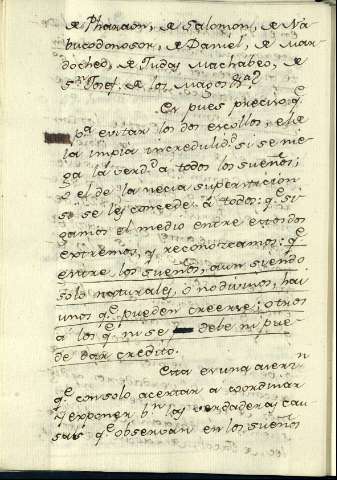 de Pharaon, de Salomon, de Na
bucodonosor, de Daniel, de Mar
docheo, de Judas Machabeo, de
Sn. Josef, de los Magos &a?
Es pues preciso qe.
pa. evitar los dos escollos, el de
la impia incredulidd. si se nie
ga la verdd. a todos los sueños;
o el de la necia supersticion
si se les concede à todos: qe. si
gamos el medio entre estos dos
extremos, y reconozcamos: qe.
entre los sueños, aun siendo
solo naturales, ò no divinos, hai
unos qe. pueden creerse; otros
a los qe. ni se debe ni pue
de dar credito.
Esta es una averin
qe. con solo acertar a coordinar
y exponer bn. las verdaderas cau
sas qe. observan en los sueños